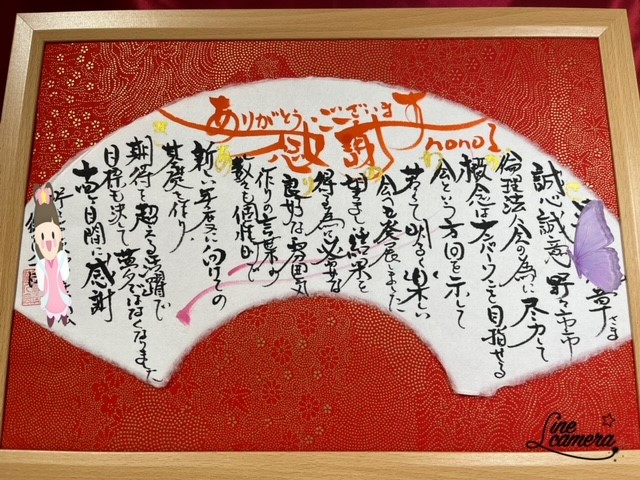 ありがとうございます
感謝
nono1
章さま
誠心誠意 野々市市
倫理法人会の為に尽力して
概念はナンバーワンを目指せる
会という方向を示して
若々しく明るく楽しい
会へと発展しました
結果を
得る為に必要な
良好な雰囲気
作りの言葉が
数々も個性的で
新しい年度に向けての
基礎を作り
期待を超える活躍で
目標も決して夢ではなくなりました
に感謝
Line camera